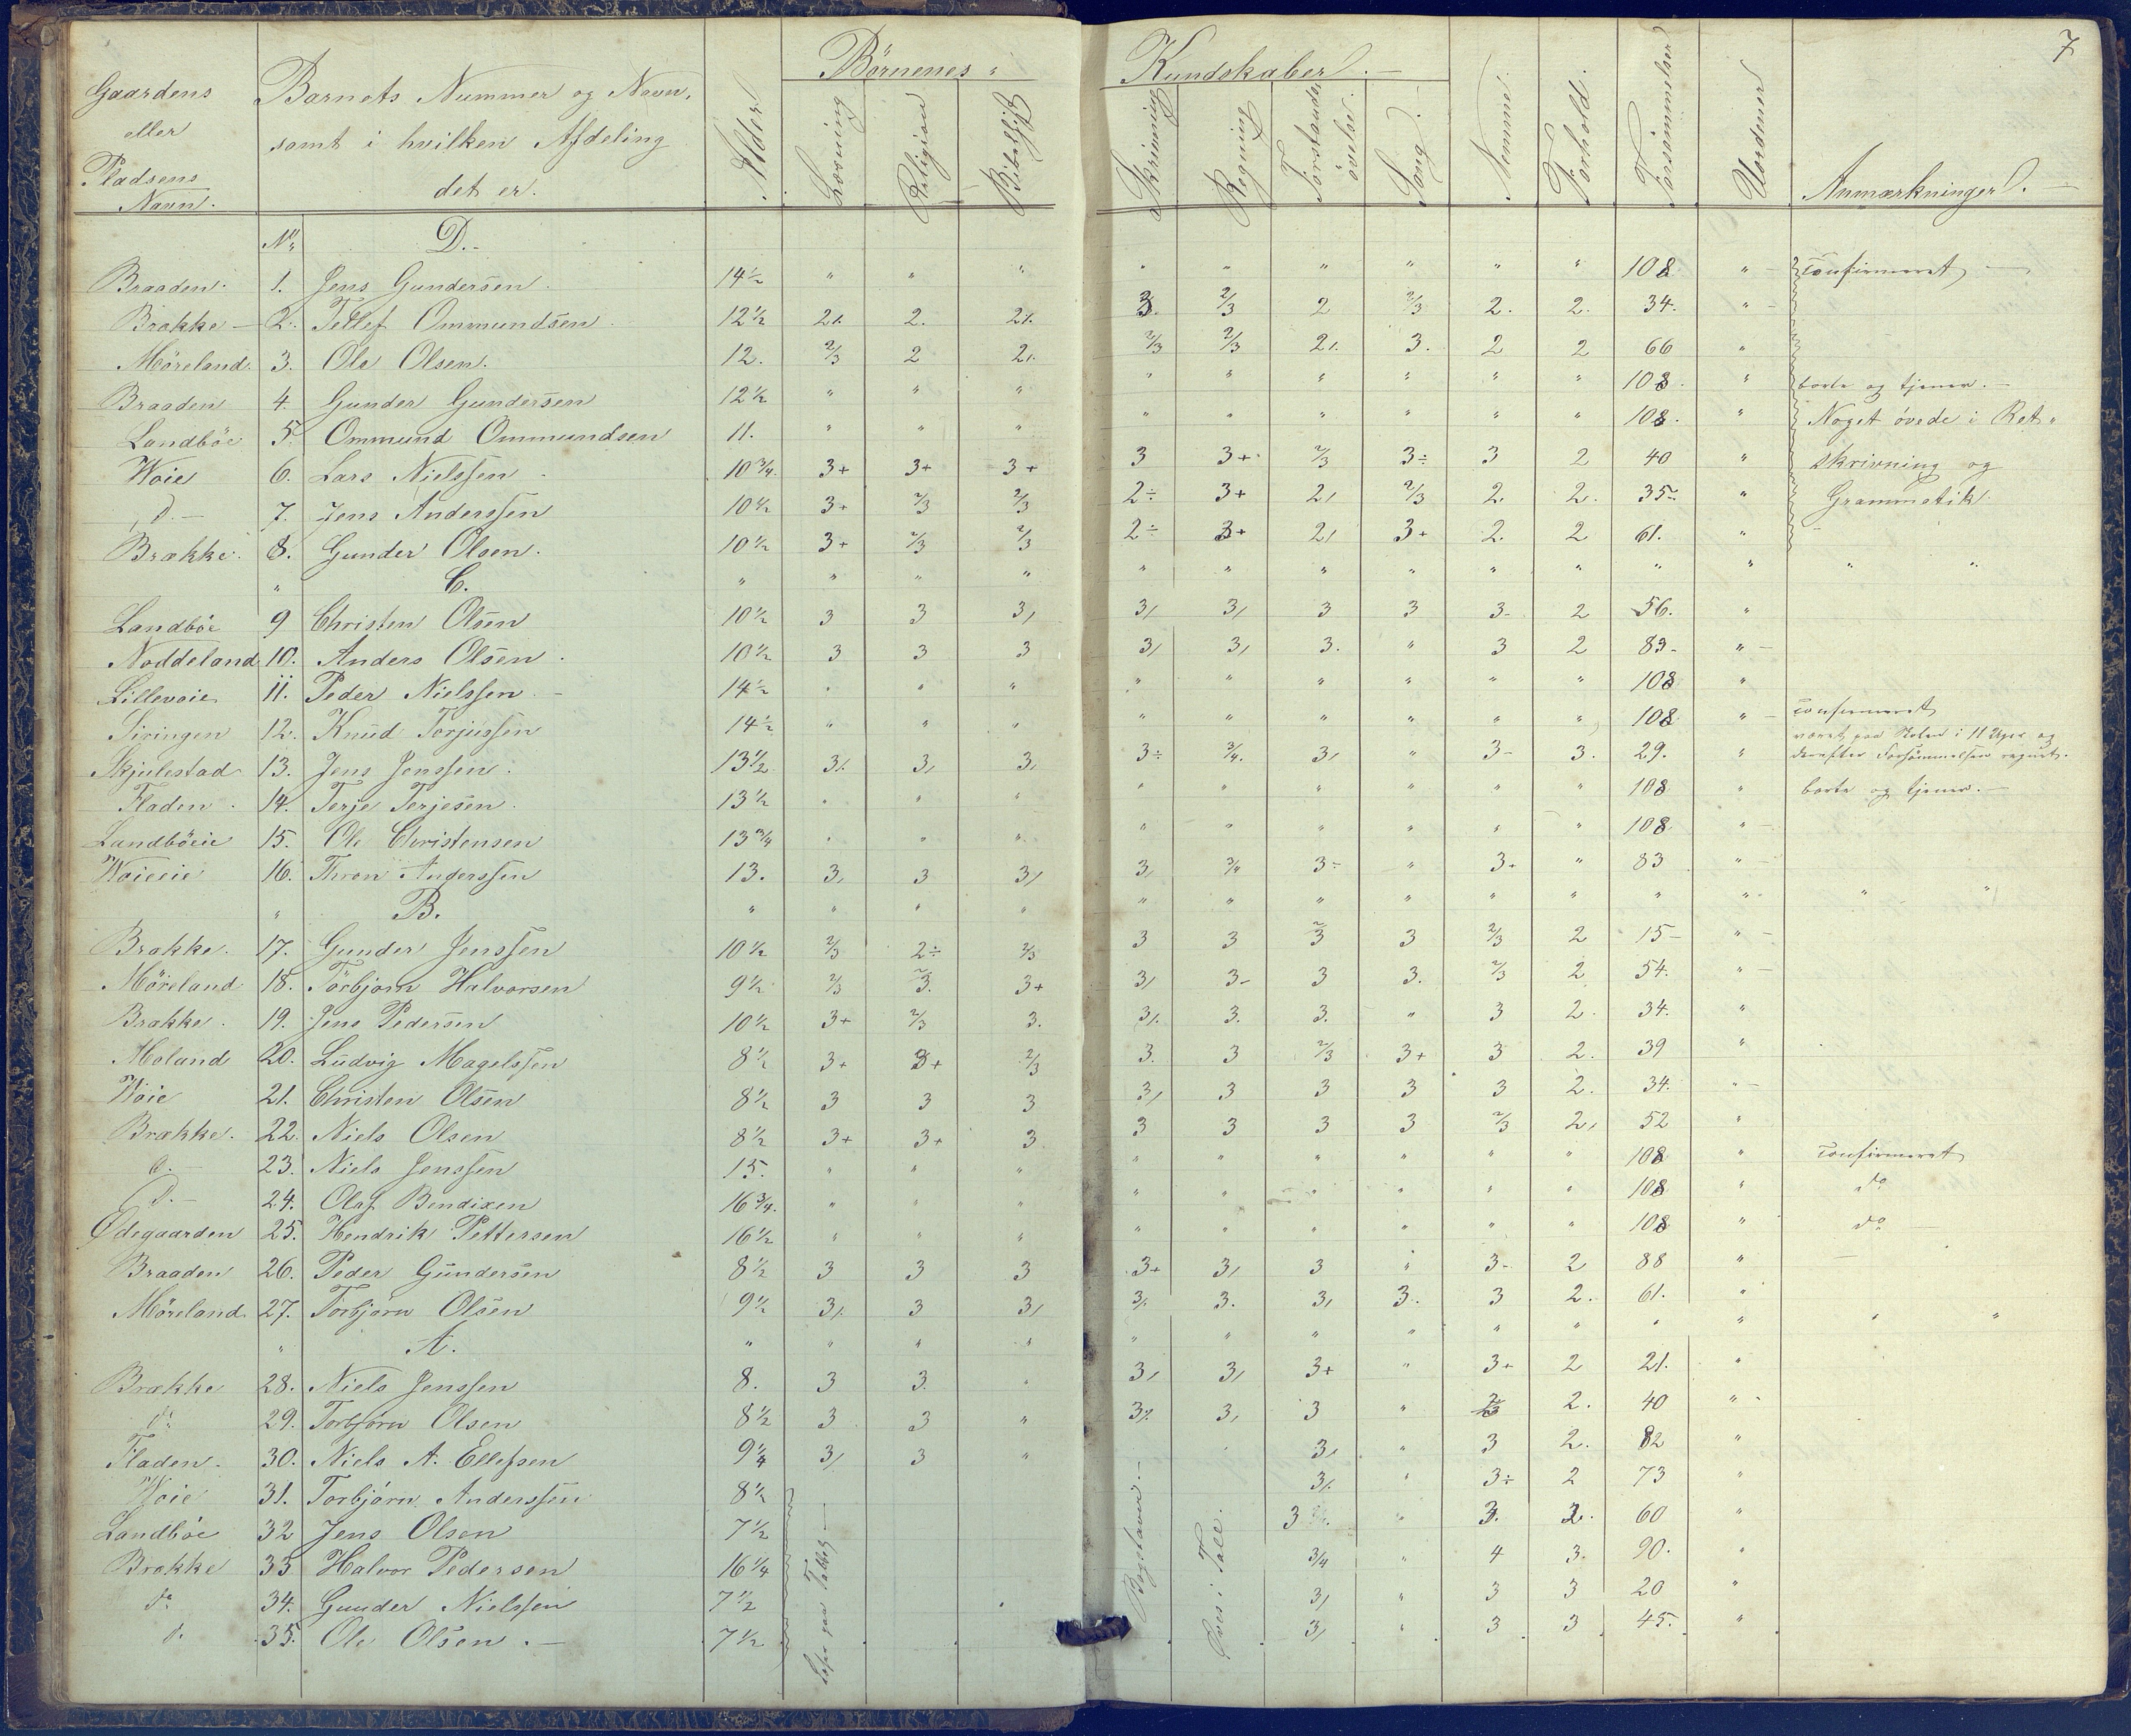 7
Gaardens eller Pladsens Navn.
Barnets Nummer og Navn, samt i hvilken Afdeling det er.
Alder
Børnenes Kundskaber.
Læsning Religion Bibelhist Skrivning Regning Forstandsøvelser Sang
Nemme Forhold Forsømmelser Uordener Anmærkninger.
No D.
Braaden. 1. Jens Gundersen. 14½ " " " " " " " " " 108 " confirmeret
Brække 2. Tellef Ommundsen. 12½ 2/. 2. 2/. 3. 2/3 2 2/3 2. 2. 34. "
Möreland. 3. Ole Olsen. 12. 2/3 2 2/. 2/3 2/3 2/. 3. 2 2 66 "
Braaden 4. Gunder Gundersen 12½ " " " " " " " " " 108. " borte og tjener.
Landböe 5. Ommund Ommundsen 11. " " " " " " " " " 108. " Noget øvede i Ret-
Woie 6. Lars Nielssen 10¾. 3+ 3+ 3+ 3 3+ 2/3 3÷ 3 2 40 " skrivning og
d. 7. Jens Anderssen 10½ 3+ 2/3 2/3 2÷ 3+ 2/ 2/3 2. 2. 35 " Grammatik.
Brække. 8. Gunder Olsen. 10½ 3+ 2/3 2/3 2÷ 3+ 2/ 3+ 2. 2 61. "
" C. " " " " " " " " " " " " " " "
Landböe 9 Christen Olsen 10½ 3 3 3/ 3/ 3/ 3 3 3- 2 56. "
Noddeland 10. Anders Olsen. 10½ 3 3 3 3/ 3/ 3. " 3 2 83- "
Lillevoie 11. Peder Nielssen. 14½ " " " " " " " " " 108 "
Siringen 12. Knud Torjussen 14½ " " " " " " " " " 108 " confirmeret
Skjulestad 13. Jens Jenssen. 13½ 3/. 3/ 3/ 3÷ 3/4. 3/ " 3- 3. 29. " været paa Skolen i 11 Uger og derefter Forsömmelsen regnet.
Fladen. 14. Terje Terjesen. 13½ " " " " " " " " " 108 " borte og tjener.
Landböeie 15. Ole Christensen 13¾ " " " " " " " " " 108. "
Woieeie 16. Thron Anderssen 13. 3/ 3 3/ 3/ 3/4 3÷ " 3+ " 83 "
" B. " " " " " " " " " " " " " "
Brække. 17. Gunder Jenssen 10½ 2/3 2÷ 2/3 3 3 2/3 3 2/3 2 15 "
Möreland 18. Törbjörn Halvorsen 9½ 2/3 2/3. 3+ 3/ 3- 3 3. 2/3 2 54. "
Brække. 19. Jens Pedersen 10½ 3+ 2/3 3. 3/. 3. 3. " 3 2. 34. "
Moland 20. Ludvig Magelssen 8½ 3+ 3+ 2/3 3. 3 2/3 3+ 3 2. 39 "
Woie 21. Christen Olsen 8½ 3 3 3 3/ 3 3 3 3 2. 34. "
Brække. 22. Niels Olsen 8½ 3+ 3+ 3 3 3 3 3 2/3 2, 52 "
d. 23. Niels Jenssen 15. " " " " " " " " " 108 " confirmeret
d. 24. Olaf Bendixen 16¾. " " " " " " " " " 108 " do
Ødegaarden 25. Hendrik Pettersen 16½ " " " " " " " " " 108 " do
Braaden 26. Peder Gundersen 8½ 3 3 3 3+ 3/ 3 " 3- 2 88 "
Möreland 27. Torbjörn Olsen 9½ 3/. 3 3/ 3/. 3. 3/ 3. 3 2. 61. "
" A. " " " " " " " " " " " " " "
Brække 28. Niels Jenssen 8. 3 3. " 3/ 3/ 3+ " 3+ 2 21. "
do 29. Torbjörn Olsen 8½ 3 3 " 3/. 3/ 3 " 2. 40 "
Fladen. 30. Niels A. Ellefsen 9¼ 3/ 3 " 3/ " 3 2. 82 "
Woie 31. Torbjörn Anderssen 8½ 3/. " 3÷ 2 73 "
Landböe 32 Jens Olsen 7½ 3 " 3. 2. 60 "
Brække 33 Halvor Pedersen 16¼ 3/4 " 4 3. 90. "
do 34. Gunder Nielssen 7½ 3/ " 3 3 20 "
d. 35. Ole Olsen. 7½ 3/ " 3 3 45. "
paa Tabel
Bogstaver.
Øves i Tal.